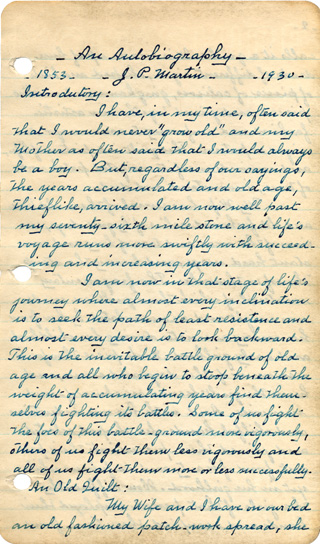 - An Autobiography -
- 1853 - - J. P. Martin - - 1930 -
Introdutory:
I have, in my time, often said
that I would never "grow old" and my
Mother as often said that I would always
be a boy. But, regardless of our sayings,
the years accumulated and old age,
thieflike, arrived. I am now well past
my seventy-sixth mile stone and life's
voyage runs more swiftly with succeed-
ing and increasing years.
I am now in that stage of life's
journey where almost every inclination
is to seek the path of least resistence and
almost every desire is to look backward.
This is the inevitable battle ground of old
age and all who begin to stoop beneath the
weight of accumulating years find them-
selves fighting its battles. Some of us fight
the foes of this battle-ground more vigorously,
others of us fight them less vigorously and
all of us fight them more or less successfully.
An Old Quilt:
My Wife and I have on our bed
an old fashioned patch-work spread, she